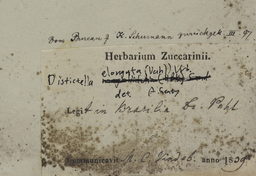 Von Bureau & K. Schumann zurückgek. III. 97
Herbarium Zuccarinii.
Distictella elongata (Vahl) Urb.
det
Legit in Brasilia Dr. Pohl
Communicavit M. C. Vindob. anno 1839